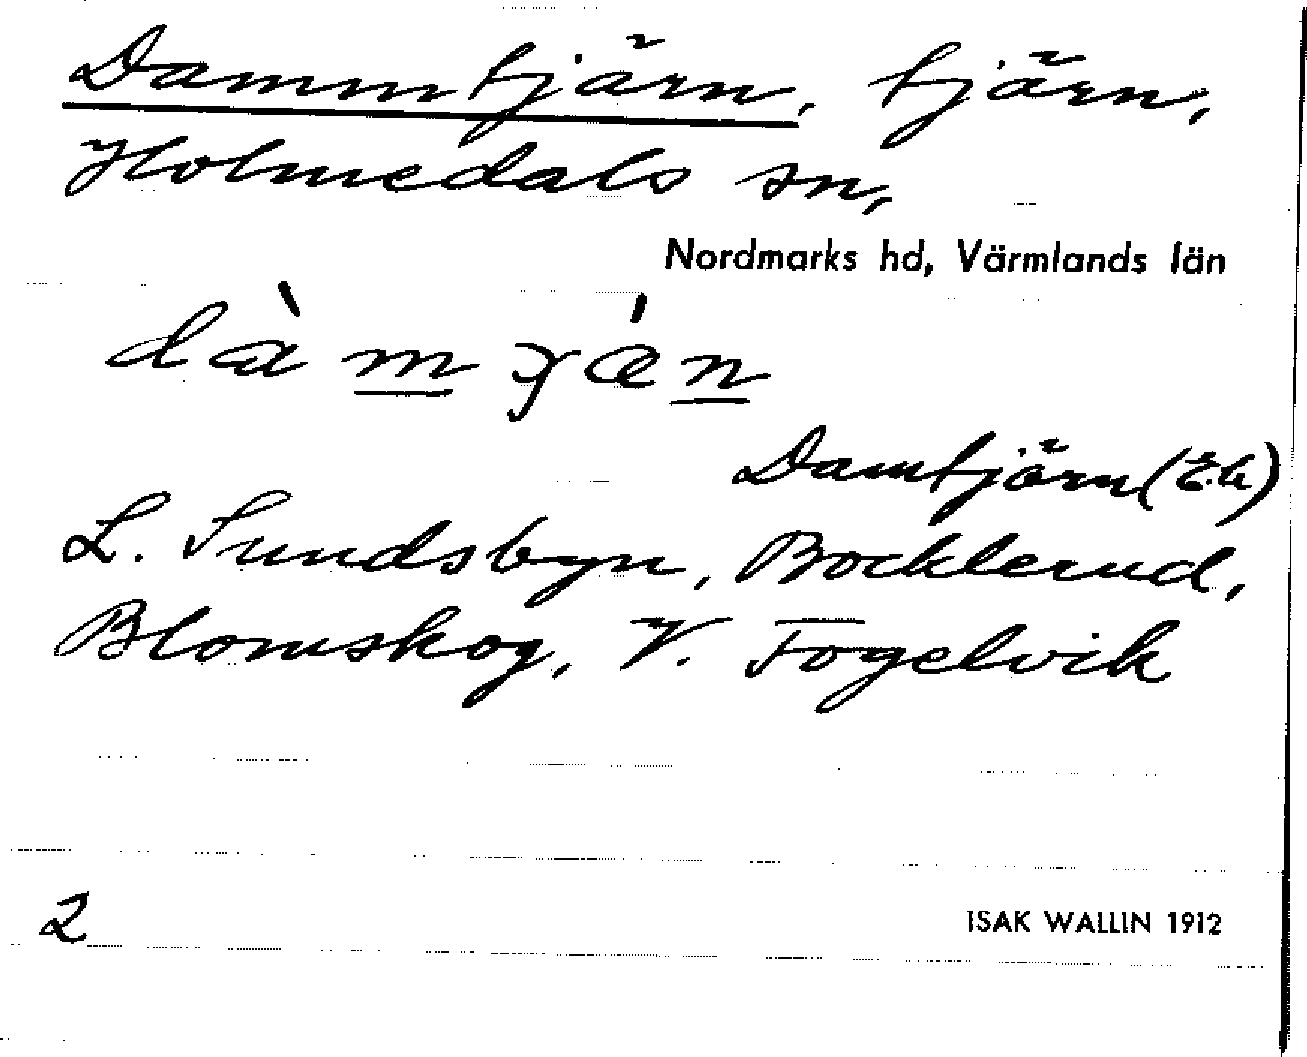 Dammtjärn, tjärn,
Holmedals sn,
Nordmarks hd, Värmlands län
dàmɣán
Damtjärn (E.k)
L. Sundsbyn, Bocklerud,
Blomskog, V. Fogelvik
2
ISAK WALLIN 1912